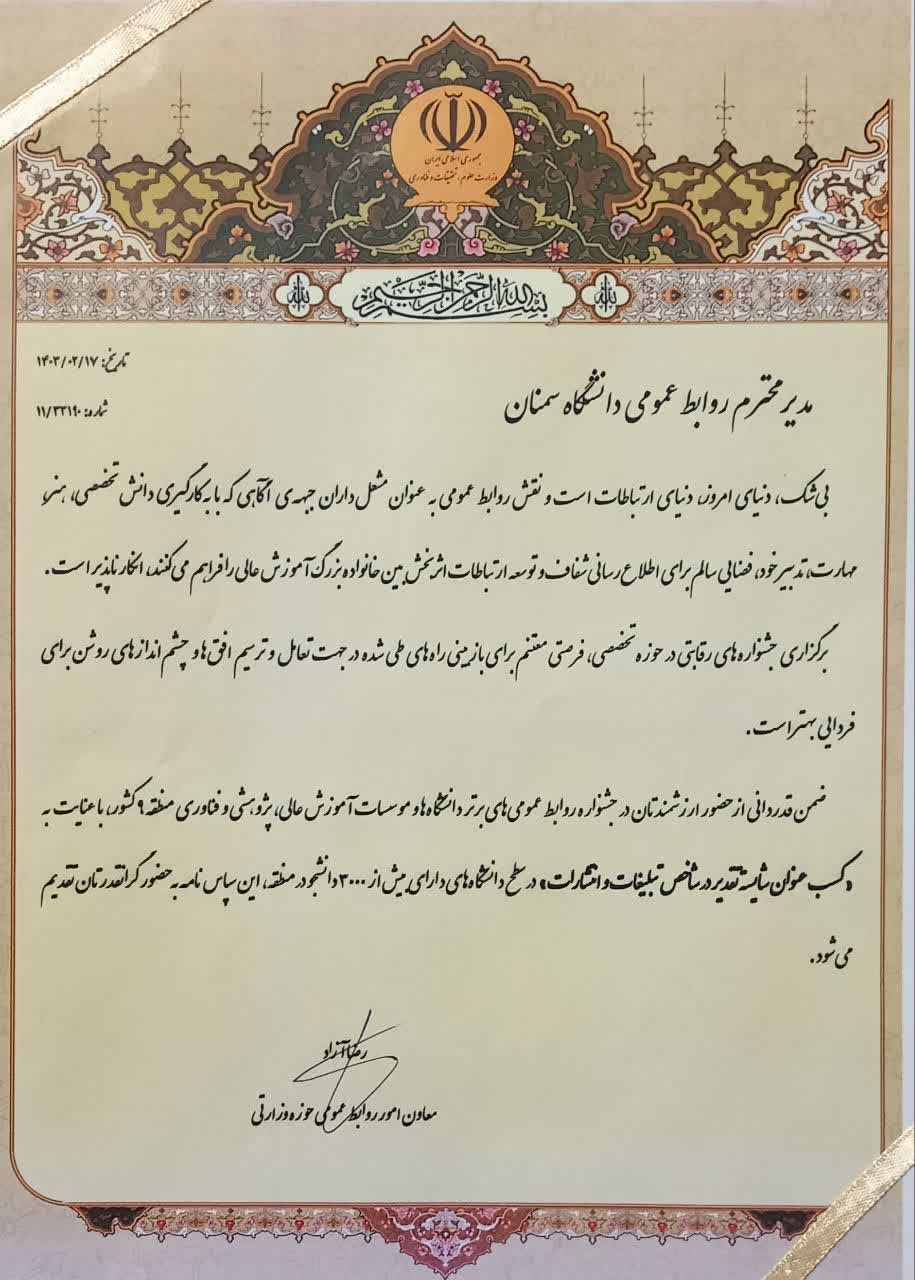 جمهوری اسلامی ایران
وزارت علوم، تحقیقات و فناوری
بسم الله الرحمن الرحیم
تاریخ: ۱۴۰۳/۰۲/۱۷
شماره: ۱۱/۳۳۱۹۰
مدیر محترم روابط عمومی دانشگاه سمنان
بی شک، دنیای امروز، دنیای ارتباطات است و نقش روابط عمومی به عنوان مشعل داران جبهه ی آگاهی که با به کارگیری دانش تخصصی، هنر،
مهارت، تدبیر خود، فضایی سالم برای اطلاع رسانی شفاف و توسعه ارتباطات اثربخش بین خانواده بزرگ آموزش عالی را فراهم می کنند، انکار ناپذیر است.
برگزاری جشنواره های رقابتی در حوزه تخصصی، فرصتی مغتنم برای بازبینی راه های طی شده در جهت تعامل و ترسیم افق ها و چشم اندازهای روشن برای
فردایی بهتر است.
ضمن قدردانی از حضور ارزشمندتان در جشنواره روابط عمومی های برتر دانشگاه ها و موسسات آموزش عالی، پژوهشی و فناوری منطقه ۹ کشور، با عنایت به
«کسب عنوان شایسته تقدیر در شاخص تبلیغات و انتشارات» در سطح دانشگاه های دارای بیش از ۳۰۰۰ دانشجو در منطقه، این سپاس نامه به حضور گرانقدرتان تقدیم
می شود.
رضا آزاد
معاون امور روابط عمومی حوزه وزارتی